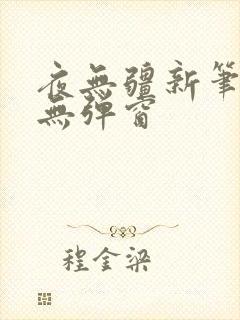 夜無疆新筆
無彈窗
程金梁